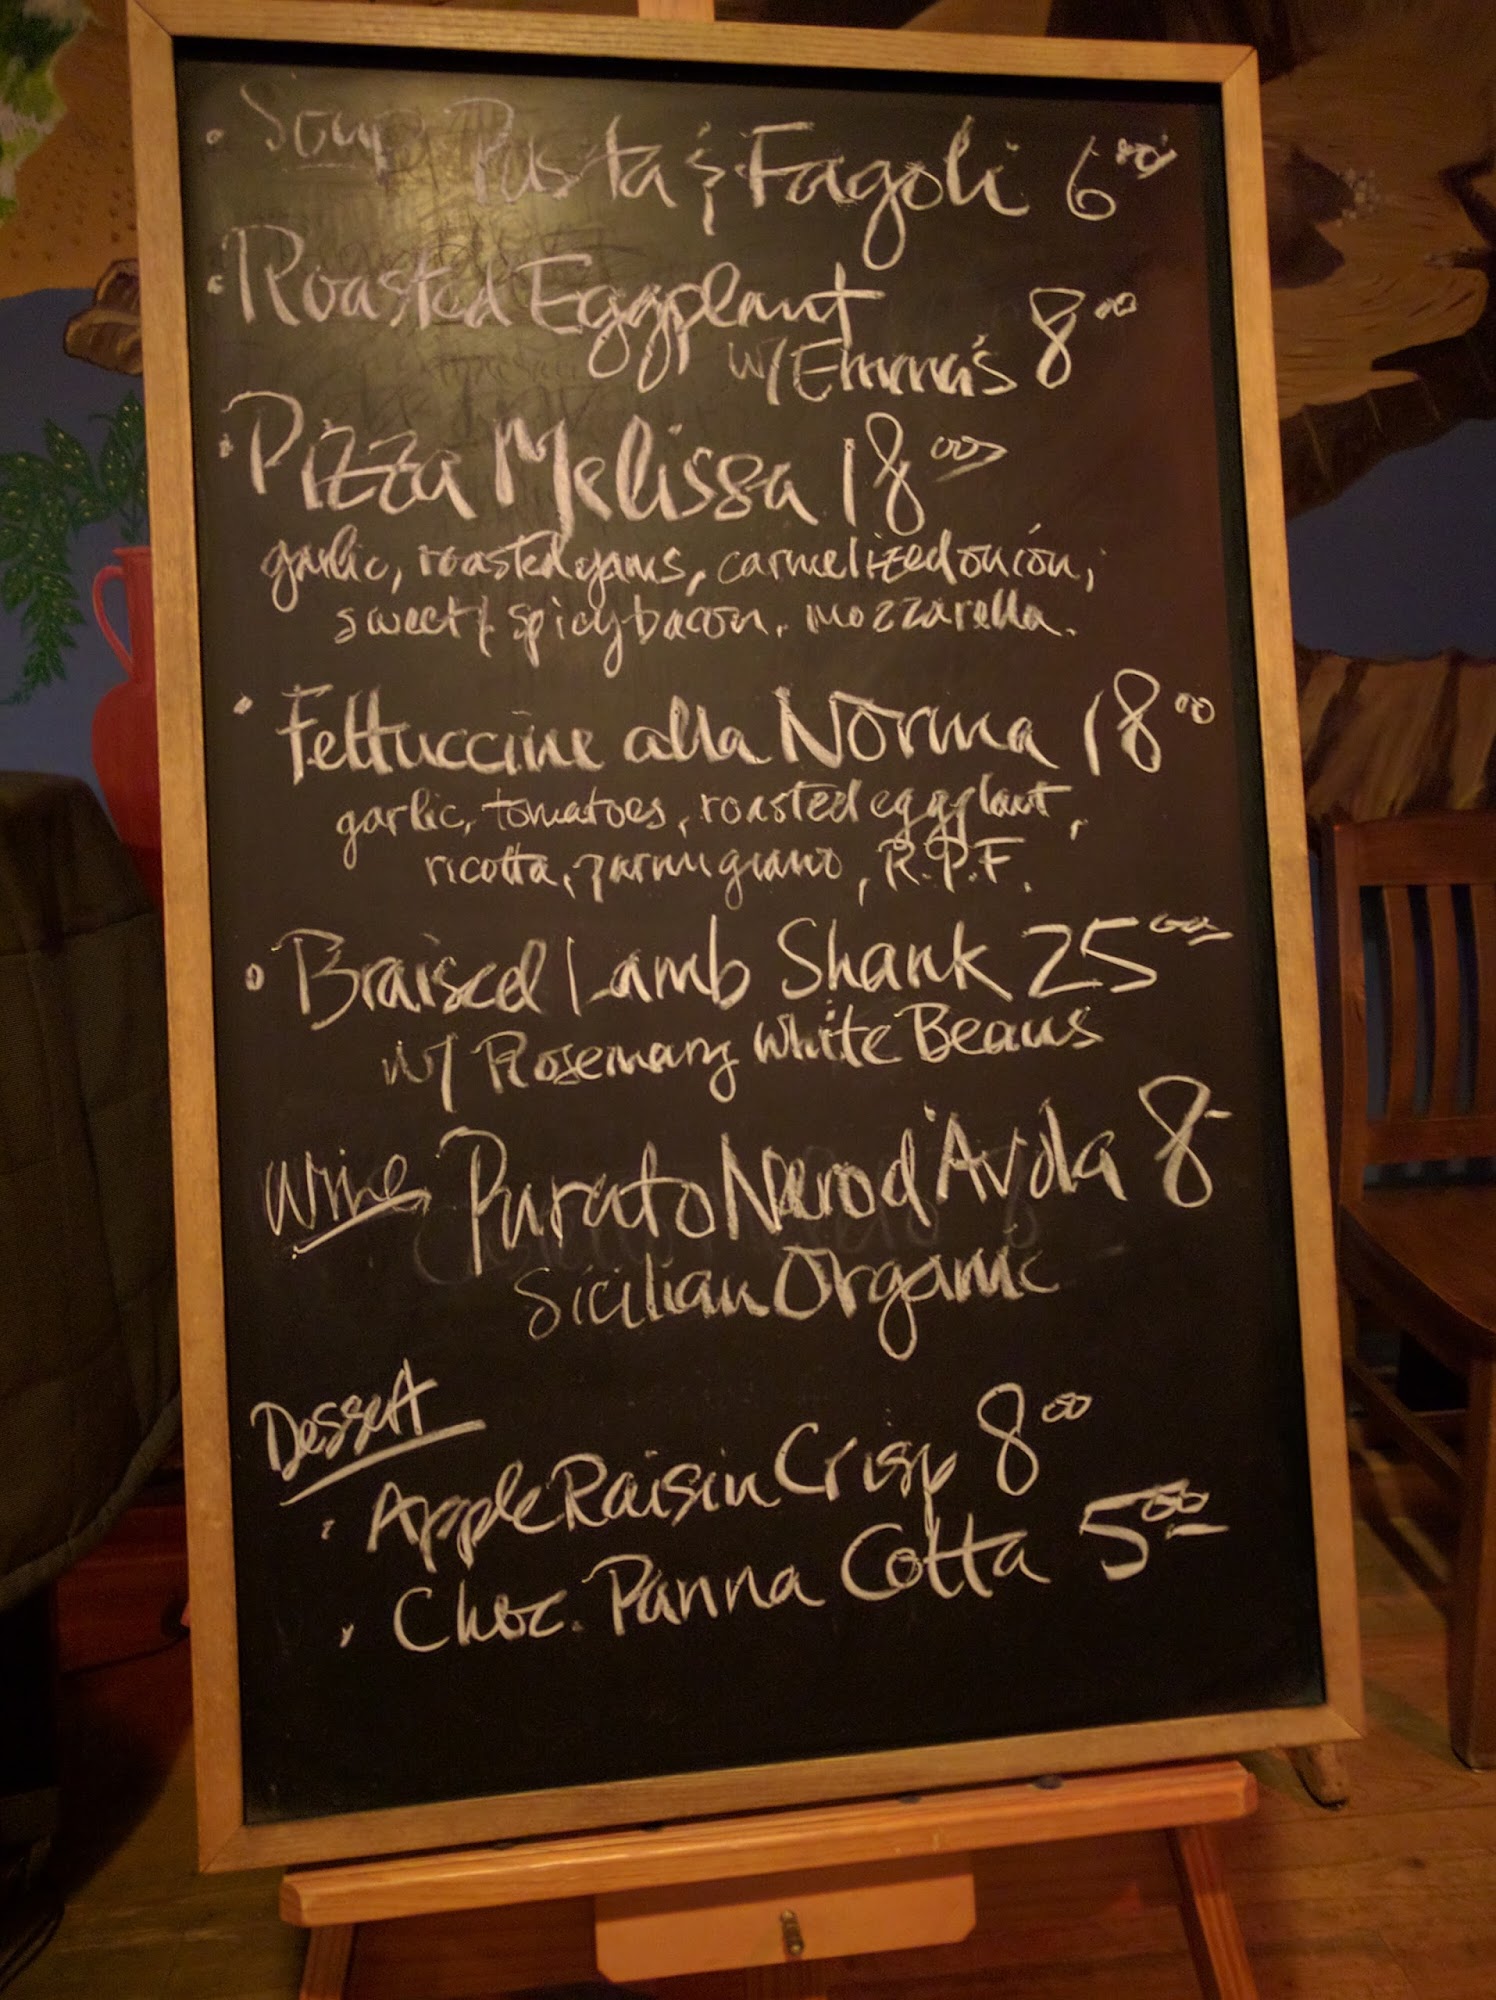 · Soup Pasta & Fagoli 6⁰⁰
· Roasted Eggplant
w/ Emma's 8⁰⁰
· Pizza Melissa 18⁰⁰
garlic, roasted yams, carmelized onion,
sweet & spicy bacon, mozzarella.
· Fettuccine alla Norma 18⁰⁰
garlic, tomatoes, roasted eggplant,
ricotta, parmigiano, R.P.F.
· Braised Lamb Shank 25⁰⁰
w/ Rosemary White Beans
Wine Purato Nero d'Avola 8-
Sicilian Organic
Dessert
· Apple Raisin Crisp 8⁰⁰
· Choc. Panna Cotta 5⁰⁰